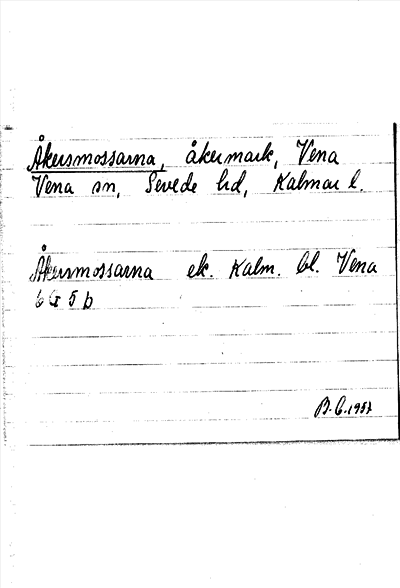 Åkersmossarna, åkermark, Vena
Vena sn, Sevede hd, Kalmar l.
Åkersmossarna ek. Kalm. bl. Vena
6 G 5 b
B.C. 1957